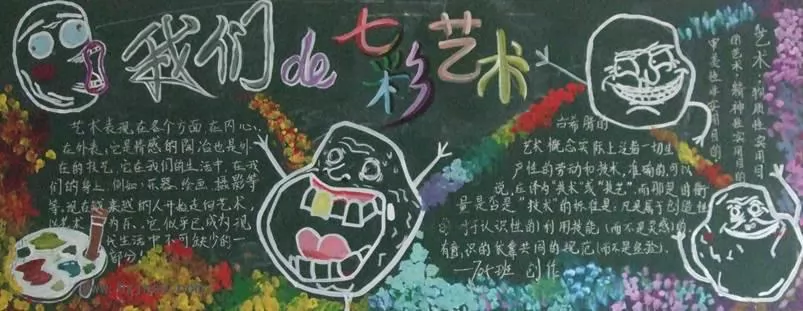 我们de七彩艺术
艺术表现在各个方面,在内心、
在外表,它是情感的陶冶也是外
在的技艺,它在我们的生活中,在我
们的身上,例如:乐器、绘画、摄影等
等。现在越来越的人开始走向艺术,
以艺术为
代生活中不可缺少的一
部分!
古希腊的
艺术概念实际上
产性的劳动和技术,准确的
说,应译为“技术”或“技艺”,而那
量是否是“技术”的标准是:凡是属于创造性
认识性的)利用技能(而不是灵感)的,
有意识的依靠共同的规范(而不是经验)。
班 创作
艺术:物质性实用目
的艺术;精神性实用目的
审美性非实用目的